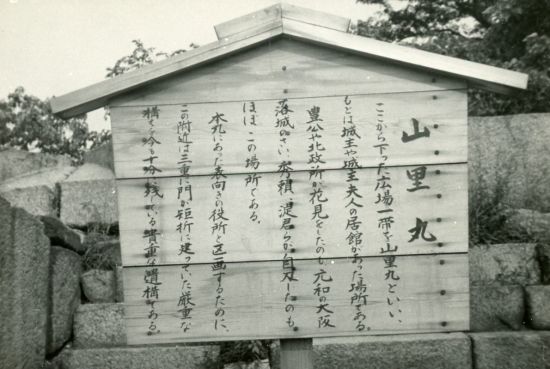 山里丸
ここから下った広場一帯を山里丸といい、
もとは城主や城主夫人の居館があった場所である。
豊公や北政所が花見をしたのも、元和の大阪
落城のさい、秀頼、淀君らが自刃したのも
ほぼこの場所である。
本丸にあった表向きの役所と区画するために、
この附近は三重に門が矩折に建っていた厳重な
構えで今も十分残っている貴重な遺構である。